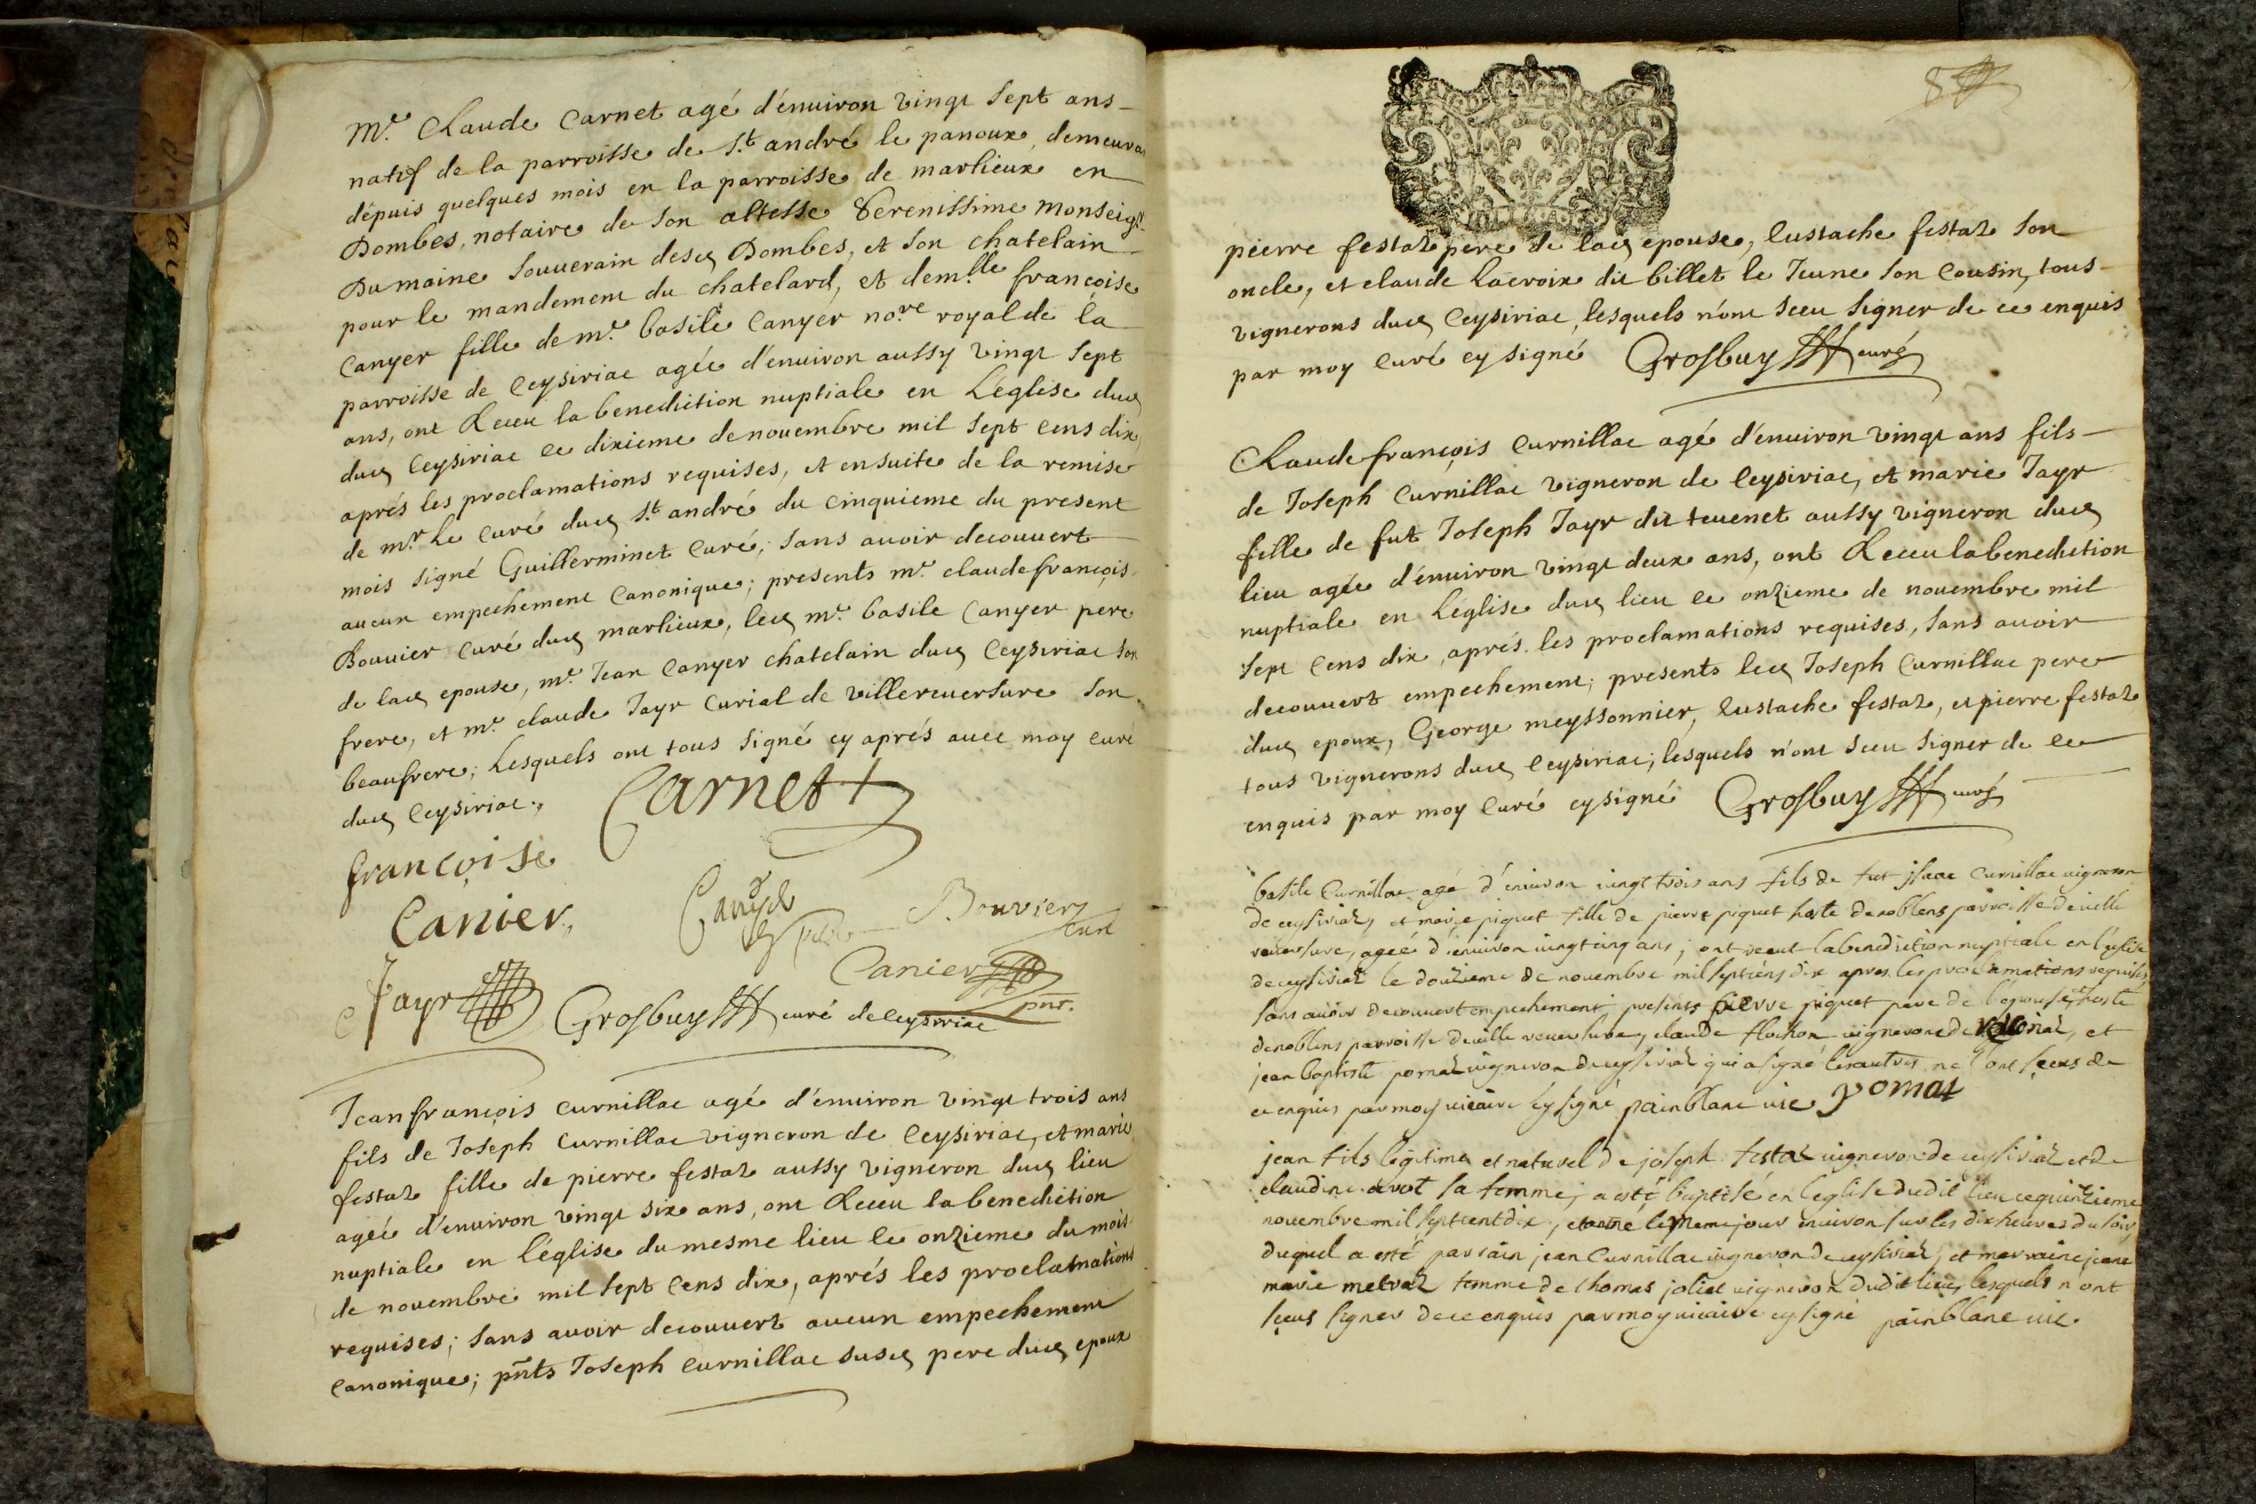 Mr. Claude Carnet agé d'énuiron vingt sept ans
natif de la parroisse de St. andré le panoux, demeuran
dépuis quelques mois en la parroisse de marlieux en
Dombes, notaire de son altesse Serenissime Monseigr.
Dumaine souuerain desd Dombes, et son chatelain
pour le mandement du chatelard, et demlle. françoise
Canyer fille de mr. basile Canyer nore. royal de la
parroisse de Ceysiriac agée d'énuiron aussy vingt sept
ans, ont Receu la benediction nuptiale en L'église dud
dud Ceysiriac ce dixieme de nouembre mil sept cens dix,
aprés les proclamations requises, et en suite de la remise
de mr. Le curé dud St. andré du cinquieme du present
mois signé Guillerminet curé; sans auoir decouuert
aucun empechement Canonique; presents mr. claude françois
Bouuier curé dud marlieux, led mr. basile Canyer pere
de lad epouse, mr. Jean Canyer chatelain dud Ceysiriac son
frere, et mr. claude Jayr Curial de villereuersure son
beaufrere; Lesquels ont tous signé cy aprés auec moy curé
dud Ceysiriac.
Carnet
françoise
Canier
Bouvier curé
Jayr Canier pnt.
Grosbuy curé de ceysiriac
Jean françois curnillac agé d'énuiron vingt trois ans
fils de Joseph Curnillac vigneron de Ceysiriac, et marie
festaz fille de pierre festaz aussy vigneron dud lieu
agée d'énuiron vingt six ans, ont Receu la benediction
nuptiale en L'église du mesme lieu le onzieme du mois
de nouembre mil sept cens dix, aprés les proclamations
requises; sans auoir decouuert aucun empechement
canonique; pnts Joseph curnillac susd pere dud epoux
pierre festaz pere de lad epouse, Eustache festaz son
oncle, et claude Lacroix dit billet le Jeune son Cousin, tous
vignerons dud Ceysiriac, lesquels n'ont sceu signer de ce enquis
par moy curé cy signé Grosbuy curé
Claude françois Curnillac agé d'énuiron vingt ans fils
de Joseph Curnillac vigneron de Ceysiriac, et marie Jayr
fille de fut Joseph Jayr dit teuenet aussy vigneron dud
lieu agée d'énuiron vingt deux ans, ont Receu la benediction
nuptiale en L'église dud lieu ce onzieme de nouembre mil
sept cens dix, aprés les proclamations requises, sans auoir
decouuert empechement; presents led Joseph Curnillac pere
dud epoux, George meyssonnier, Eustache festaz, et pierre festaz
tous vignerons dud Ceysiriac; lesquels n'ont sceu signer de ce
enquis par moy curé cy signé Grosbuy curé
basile Curnillac agé d'enuiron vingt trois ans fils de fut jsaac Curnillac vigneron
de ceysiriaz, et marie piquet fille de pierre piquet hoste de noblens parroisse de ville
reuersure, agée d'enuiron vingt cinq ans; ont receut la benediction nuptiale en l'eglise
de ceysiriaz le douzieme de novembre mil sept cens dix apres les proclamations requises,
sans auoir decouuert empechement presents pierre piquet pere de l'epouse hoste
de noblens parroisse de ville reuersure, claude flochon vigneron de et
jean baptiste pomaz vigneron de ceysiriaz qui a signé les autres ne l'ont sceus de
ce enquis par moy vicaire cy signé painblanc vic. pomat
jean fils légitime et naturel de joseph festaz vigneron de ceysiriaz et de
claudine sa femme, a esté baptisé en l'eglise dudit lieu ce quinzieme
novembre mil sept cent dix, et le meme jour enuiron sur les dix heures du soir,
duquel a esté parrain jean Curnillac vigneron de ceysiriaz, et marraine jeane
marie metraz femme de thomas joliet vigneron dudit lieu, lesquels n'ont
sceus signer de ce enquis par moy vicaire cy signé painblanc vic.